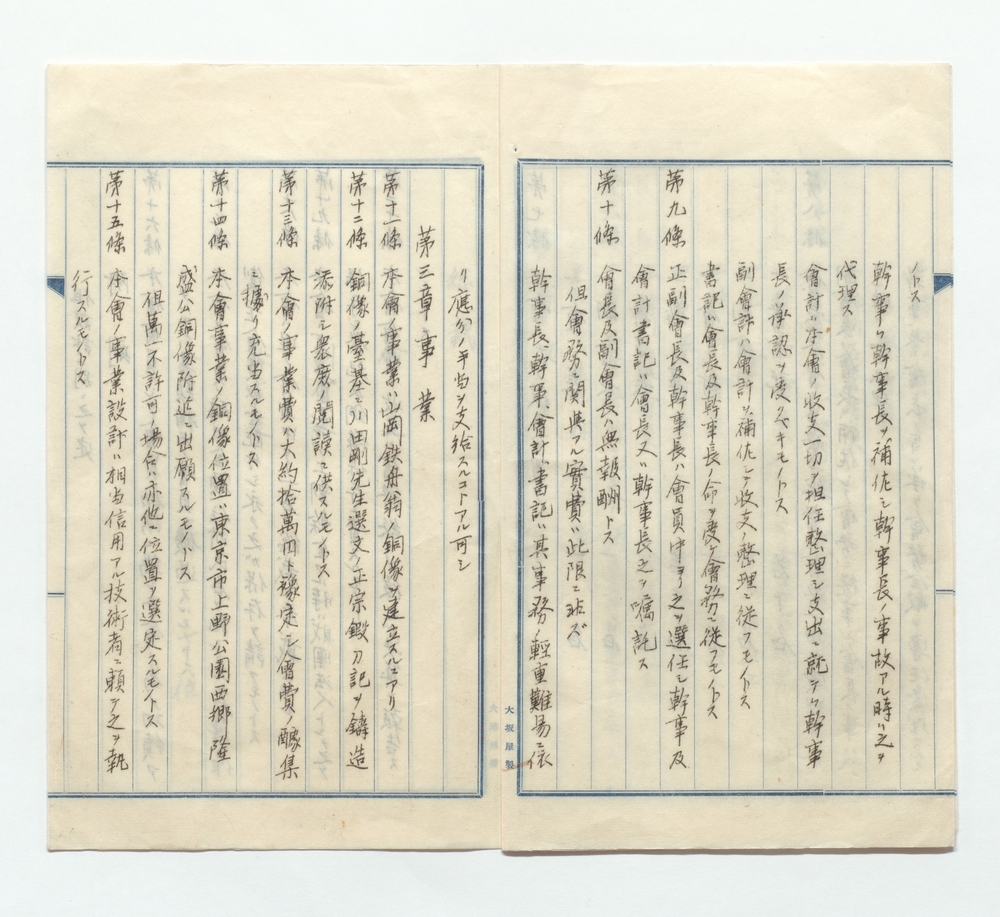 ノトス
幹事ハ幹事長ヲ補佐シ幹事長ノ事故アル時ハ之ヲ
代理ス
會計ハ本會ノ收支一切ヲ担任整理シ支出ニ就テハ幹事
長ノ承認ヲ受クベキモノトス
副會計ハ會計ヲ補佐シテ收支ノ整理ニ從フモノトス
書記ハ會長及幹事長ノ命ヲ受ケ會務ニ從フモノトス
第九條 正副會長及幹事長ハ會員中ヨリ之ヲ選任シ幹事及
會計書記ハ會長又ハ幹事長之ヲ嘱託ス
第十條 會長及副會長ハ無報酬トス
但會務ニ関與アル實費ハ此限ニ在ズ
幹事長、幹事、會計、書記ハ其事務ノ輕重難易ニ依
大坂屋製
リ應分ノ手当ヲ支給スルコトアル可シ
第三章 事業
第十一條 本會ノ事業ハ山岡鉄舟翁ノ銅像ヲ建立スルニアリ
第十二條 銅像ノ臺基ニハ川田剛先生選文ノ正宗鍛刀記ヲ鑄造
添附シ衆庶ノ閲讀ニ供スルモノトス
第十三條 本會ノ事業費ハ大約拾萬円ト豫定シ會費ノ醵集
ニ據リ充当スルモノトス
第十四條 本會事業ノ銅像位置ハ東京市上野公園西郷隆
盛公銅像附近ニ出願スルモノトス
但萬一不許可ノ場合ハ亦他ニ位置ヲ選定スルモノトス
第十五條 本會ノ事業設計ハ相当信用アル技術者ニ頼テ之ヲ執
行スルモノトス